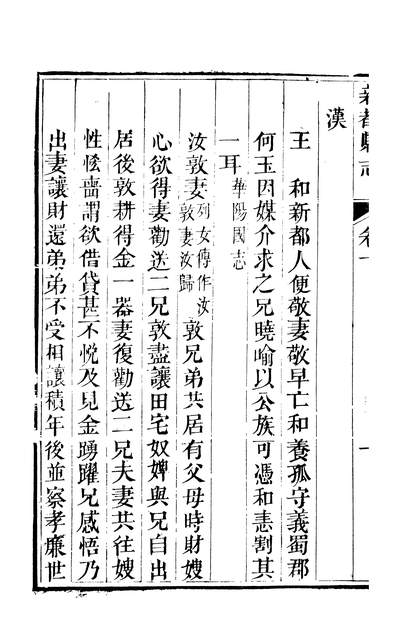 新都縣志 卷一 一
漢
王　和新都人便敬妻敬早亡和養孤守義蜀郡
何玉因媒介求之兄曉喻以公族可憑和恚割其
一耳華陽國志
汝敦妻列女傳作汝敦妻汝歸敦兄弟共居有父母時財嫂
心欲得妻勸送二兄敦盡讓田宅奴婢與兄自出
居後敦耕得金一器妻復勸送二兄夫妻共往嫂
性悋嗇謂欲借貸甚不悅及見金踴躍兄感悟乃
出妻讓財還弟弟不受相讓積年後並察孝廉世